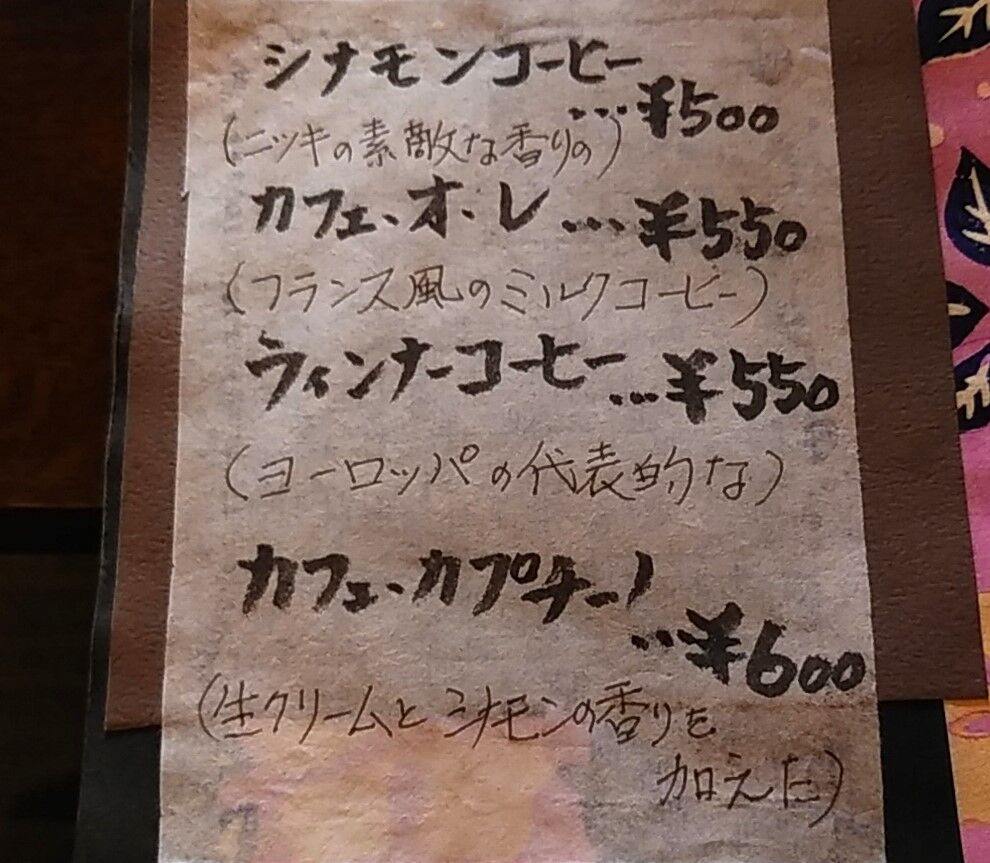 シナモンコーヒー
…¥500
(ニッキの素敵な香りの)
カフェ、オ、レ…¥550
(フランス風のミルクコーヒー)
ウィンナーコーヒー
…¥550
(ヨーロッパの代表的な)
カフェ、カプチーノ
…¥600
(生クリームとシナモンの香りを
加えた)